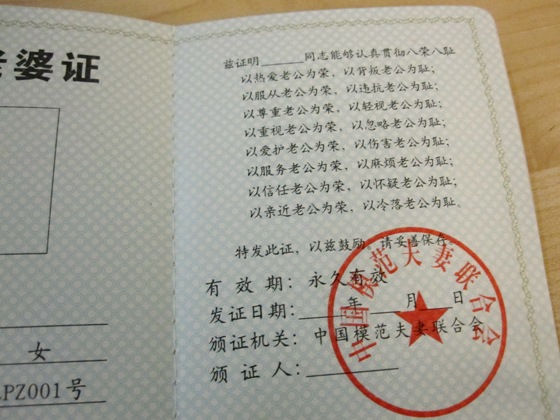 老婆证
女
LPZ001号
兹证明______同志能够认真贯彻八荣八耻
以热爱老公为荣，以背叛老公为耻；
以服从老公为荣，以违抗老公为耻；
以尊重老公为荣，以轻视老公为耻；
以重视老公为荣，以忽略老公为耻；
以爱护老公为荣，以伤害老公为耻；
以服务老公为荣，以麻烦老公为耻；
以信任老公为荣，以怀疑老公为耻；
以亲近老公为荣，以冷落老公为耻。
特发此证，以兹鼓励，请妥善保存。
有效期：永久有效
发证日期：____年____月____日
颁证机关：中国模范夫妻联合会
颁证人：________
中国模范夫妻联合会